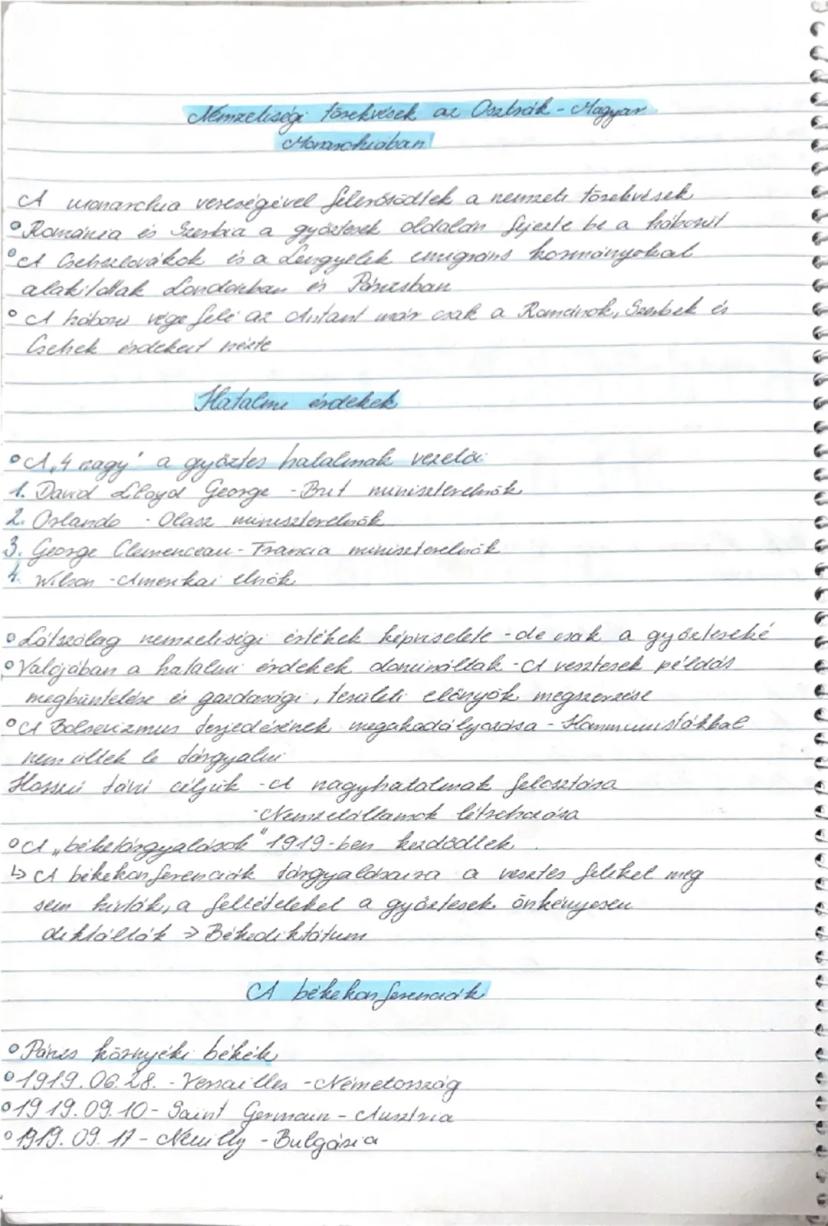 Nemzetiségi törekvések az Osztrák-Magyar
Monarchiában
A monarchia vereségével felerősödtek a nemzeti törekvések
• Románia és Szerbia a győztesek oldalán fejezte be a háborút
• A Csehszlovákok és a Lengyelek emigráns kormányokat
alakítottak Londonban és Párizsban
• A háború vége felé az Antant már csak a Románok, Szerbek és
Csehek érdekeit nézte
Hatalmi érdekek
• A „4 nagy" a győztes hatalmak vezetői
1. David Lloyd George - Brit miniszterelnök
2. Orlando - Olasz miniszterelnök
3. George Clemenceau - Francia miniszterelnök
4. Wilson - Amerikai elnök
• Látszólag nemzetiségi értékek képviselete - de csak a győzteseké
• Valójában a hatalmi érdekek domináltak - A vesztesek példás
megbüntetése és gazdasági, területi előnyök megszerzése
• A Bolsevizmus terjedésének megakadályozása - Kommunistákkal
nem ültek le tárgyalni
Hosszú távú céljuk - A nagyhatalmak felosztása
- Nemzetállamok létrehozása
• A „béketárgyalások" 1919-ben kezdődtek.
↳ A békekonferenciák tárgyalásaira a vesztes feleket meg
sem hívták, a feltételeket a győztesek önkényesen
diktálták ⇒ Békediktátum
A békekonferenciák
• Párizs környéki békék
• 1919.06.28. - Versailles - Németország
• 1919.09.10 - Saint Germain - Ausztria
• 1919.09.17 - Neuilly - Bulgária